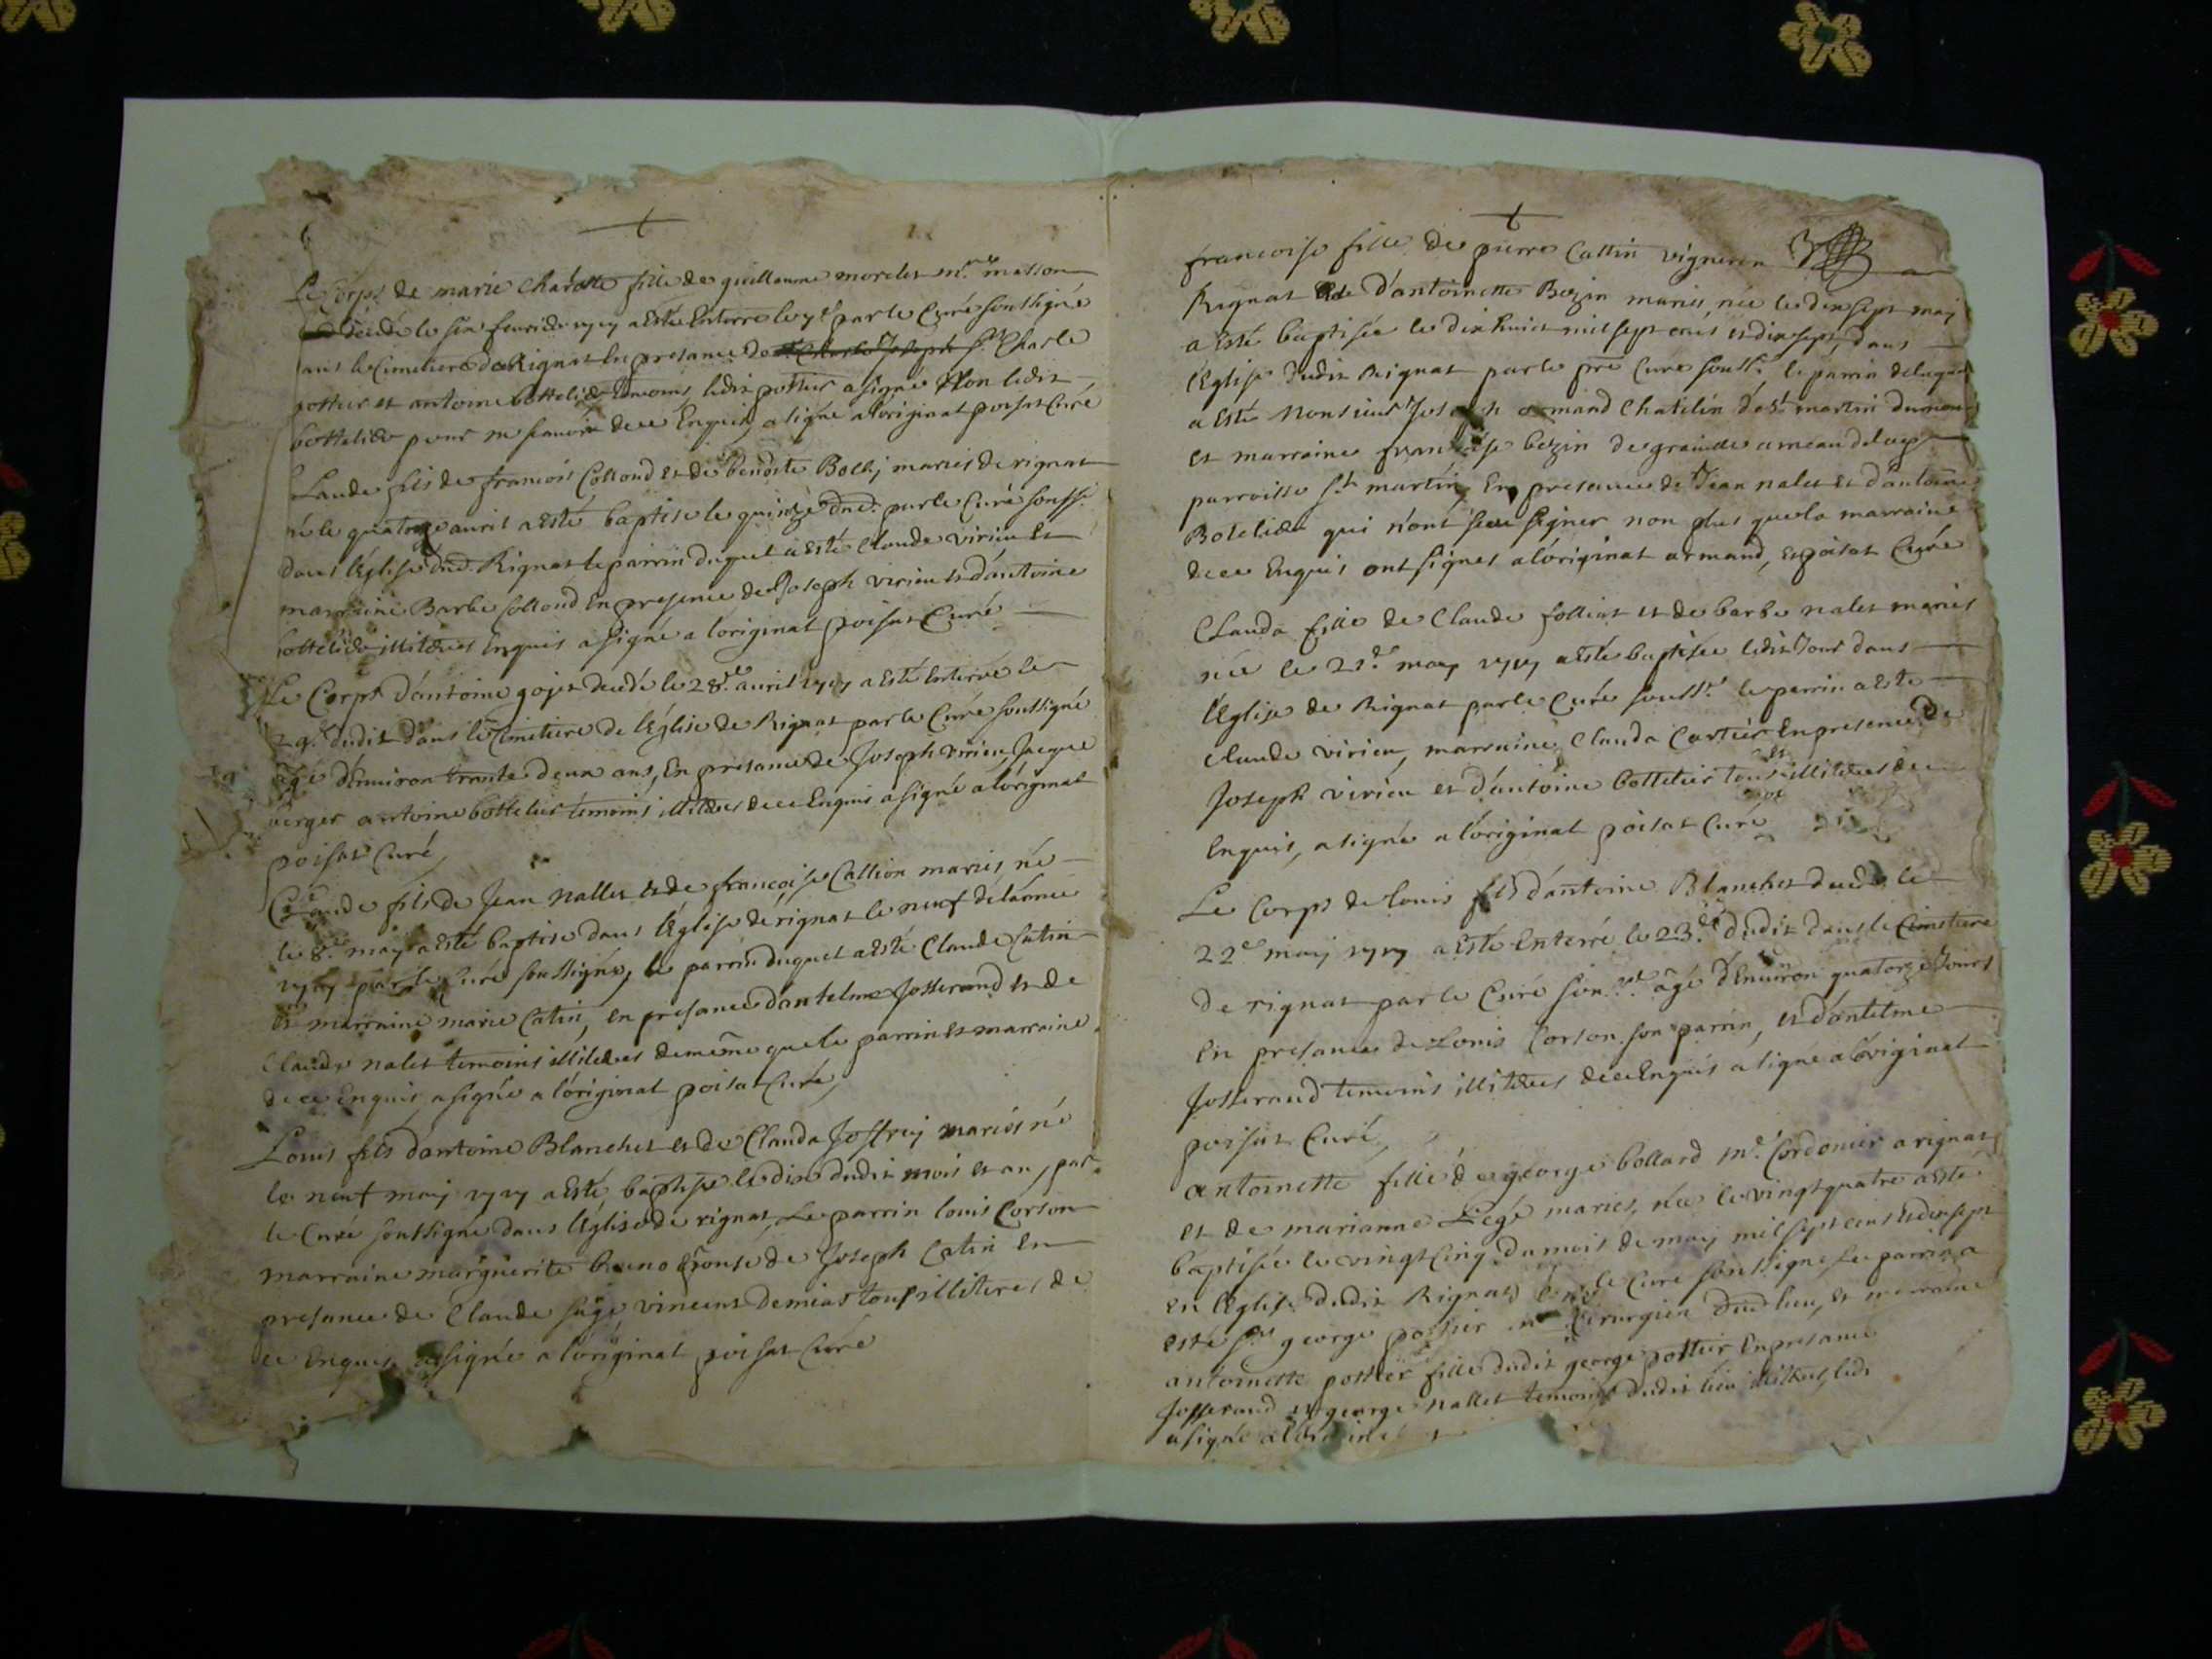 Le Corps de marie Charlotte fille de guillaume morelet m.re masson
décédé le feurier 1717 a Esté Enterré le par le Curé soussigné
dans le Cimetiere de Rignat En presance de Charle Joseph sr. Charle
pottier et antoine bottelier temoins, ledit pottier a signé Non ledit
bottelier pour ne scauoir de ce Enquis, a signé a loriginat poisat Curé
Claude fils de francois Collond et de benoiste Bolly mariés de rignat
né le quatorze auril a esté baptise le quinze dud. par le Curé souss.
dans léglise dud. Rignat le parrin duquel a esté Claude virieu Et
marraine Barbe Collond En presence de Joseph virieu et dantoine
bottelier illiterés Enquis a signé a loriginat poisat Curé
Le Corps dantoine gojet decedé le 28.e auril 1717 a esté Enterré le
29.e dudit dans le Cimetiere de léglise de Rignat par le Curé soussigné
agé denuiron trante deux ans, En presance de Joseph virieu, Jacque
verger antoine bottelier temoins illiterés de ce Enquis a signé a loriginat
poisat Curé
Claude fils de Jean nallet et de francoise Callion mariés, né
le 8.e may a esté baptise dans léglise de rignat le neuf de lannée
1717 par le Curé soussigné, le parrin duquel a esté Claude Catin
et marraine marie Catin, en presance dantelme Josserand et de
Claude nalet temoins illiterés demême que le parrin et marraine
de ce Enquis, a signé a loriginat poisat Curé,
Louis fils dantoine Blanchet et de Clauda Joffrey mariés né
le neuf may 1717 a esté baptise le dix dudit mois et an, par
le Curé soussigné dans léglise de rignat, Le parrin louis Corson
marraine marguerite bruno Epouse de Joseph Catin En
presance de Claude suge, vincent demias tous illiterés de
ce Enquis, a signé a loriginat poisat Curé
francoise fille de pierre Cattin vigneron a
Rignat Et d'antoinette Bozin mariés, née le dix sept may
a Esté baptisée le dix huict mil sept cens et dix sept, dans
léglise dudit Rignat par le pre Curé souss. le parrin delaquel
a Esté Monsieur Joseph armand Chatelin de st martin dumon
et marraine francoise bozin de grauelle ameau delad.
parroisse st martin, En presance de Jean nalet et dantoine
Botelier qui n'ont sceu signer non plus que la marraine
de ce Enquis ont signes a loriginat armand, et poisat Curé
Clauda fille de Claude folliat et de barbe nalet mariés
née le 21.e may 1717 a Esté baptisée ledit Jour dans
léglise de Rignat par le Curé souss. le parrin a Esté
Claude virieu, marraine Clauda Cartier En presence de
Joseph virieu et d'antoine bottelier tous et illiterés de ce
Enquis, a signé a loriginat poisat Curé
Le Corps de louis fils dantoine Blanchet decedé le
22.e may 1717 a Esté Enterré le 23.e dudit dans le Cimetiere
de rignat par le Curé sou.né agé denuiron quatorze Jours
En presance de Louis Corson son parrin, et dantelme
Josserand temoins illiterés de ce Enquis a signé a loriginat
poisat Curé,
antoinette fille de george bollard m.e Cordonier a rignat
et de marianne Legé mariés, née le vingt quatre a Esté
baptisée le vingt Cinq du mois de may mil sept cens et dix sept
en léglise dudit Rignat par le Curé soussigné Le parrin a
esté sr. george pottier m.e Chirurgien dud. lieu, et marraine
antoinette pottier fille dudit george pottier En presance
Josserand et george nallet temoins dudit lieu illiterés, ledi
a signé a lorigine